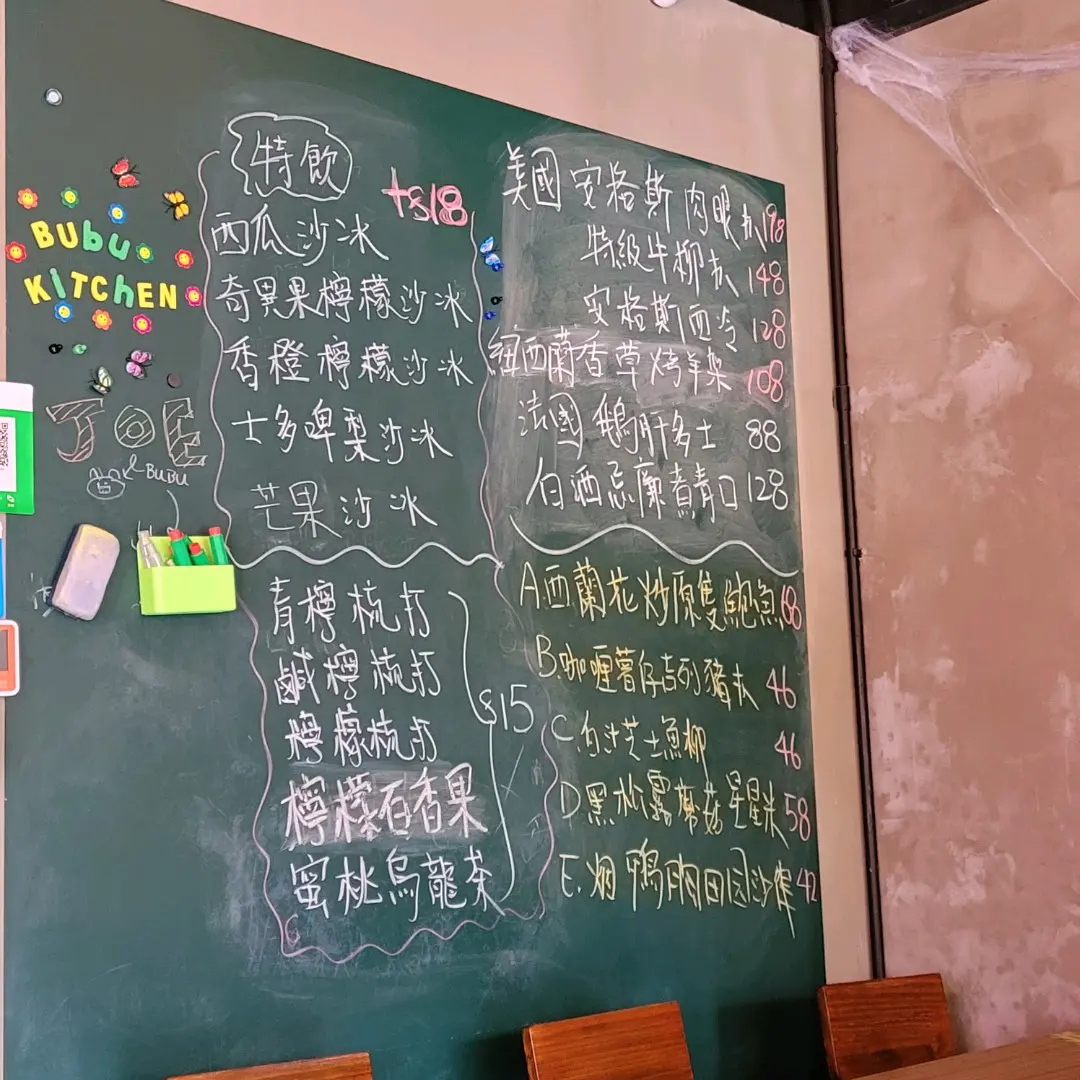 BUbU
KiTChEN
JOE
BUBU
特飲
+$18
西瓜沙冰
奇異果檸檬沙冰
香橙檸檬沙冰
士多啤梨沙冰
芒果沙冰
青檸梳打
鹹檸梳打
檸檬梳打
檸檬百香果
蜜桃烏龍茶
$15
美國安格斯肉眼扒198
特級牛柳扒148
安格斯西冷128
紐西蘭香草烤羊架108
法國鵝肝多士88
白酒忌廉煮青口128
A.西蘭花炒原隻鮑魚168
B.咖喱薯仔吉列豬扒46
C.白汁芝士魚柳46
D.黑松露蘑菇星星米58
E.烟鴨胸田园沙律42